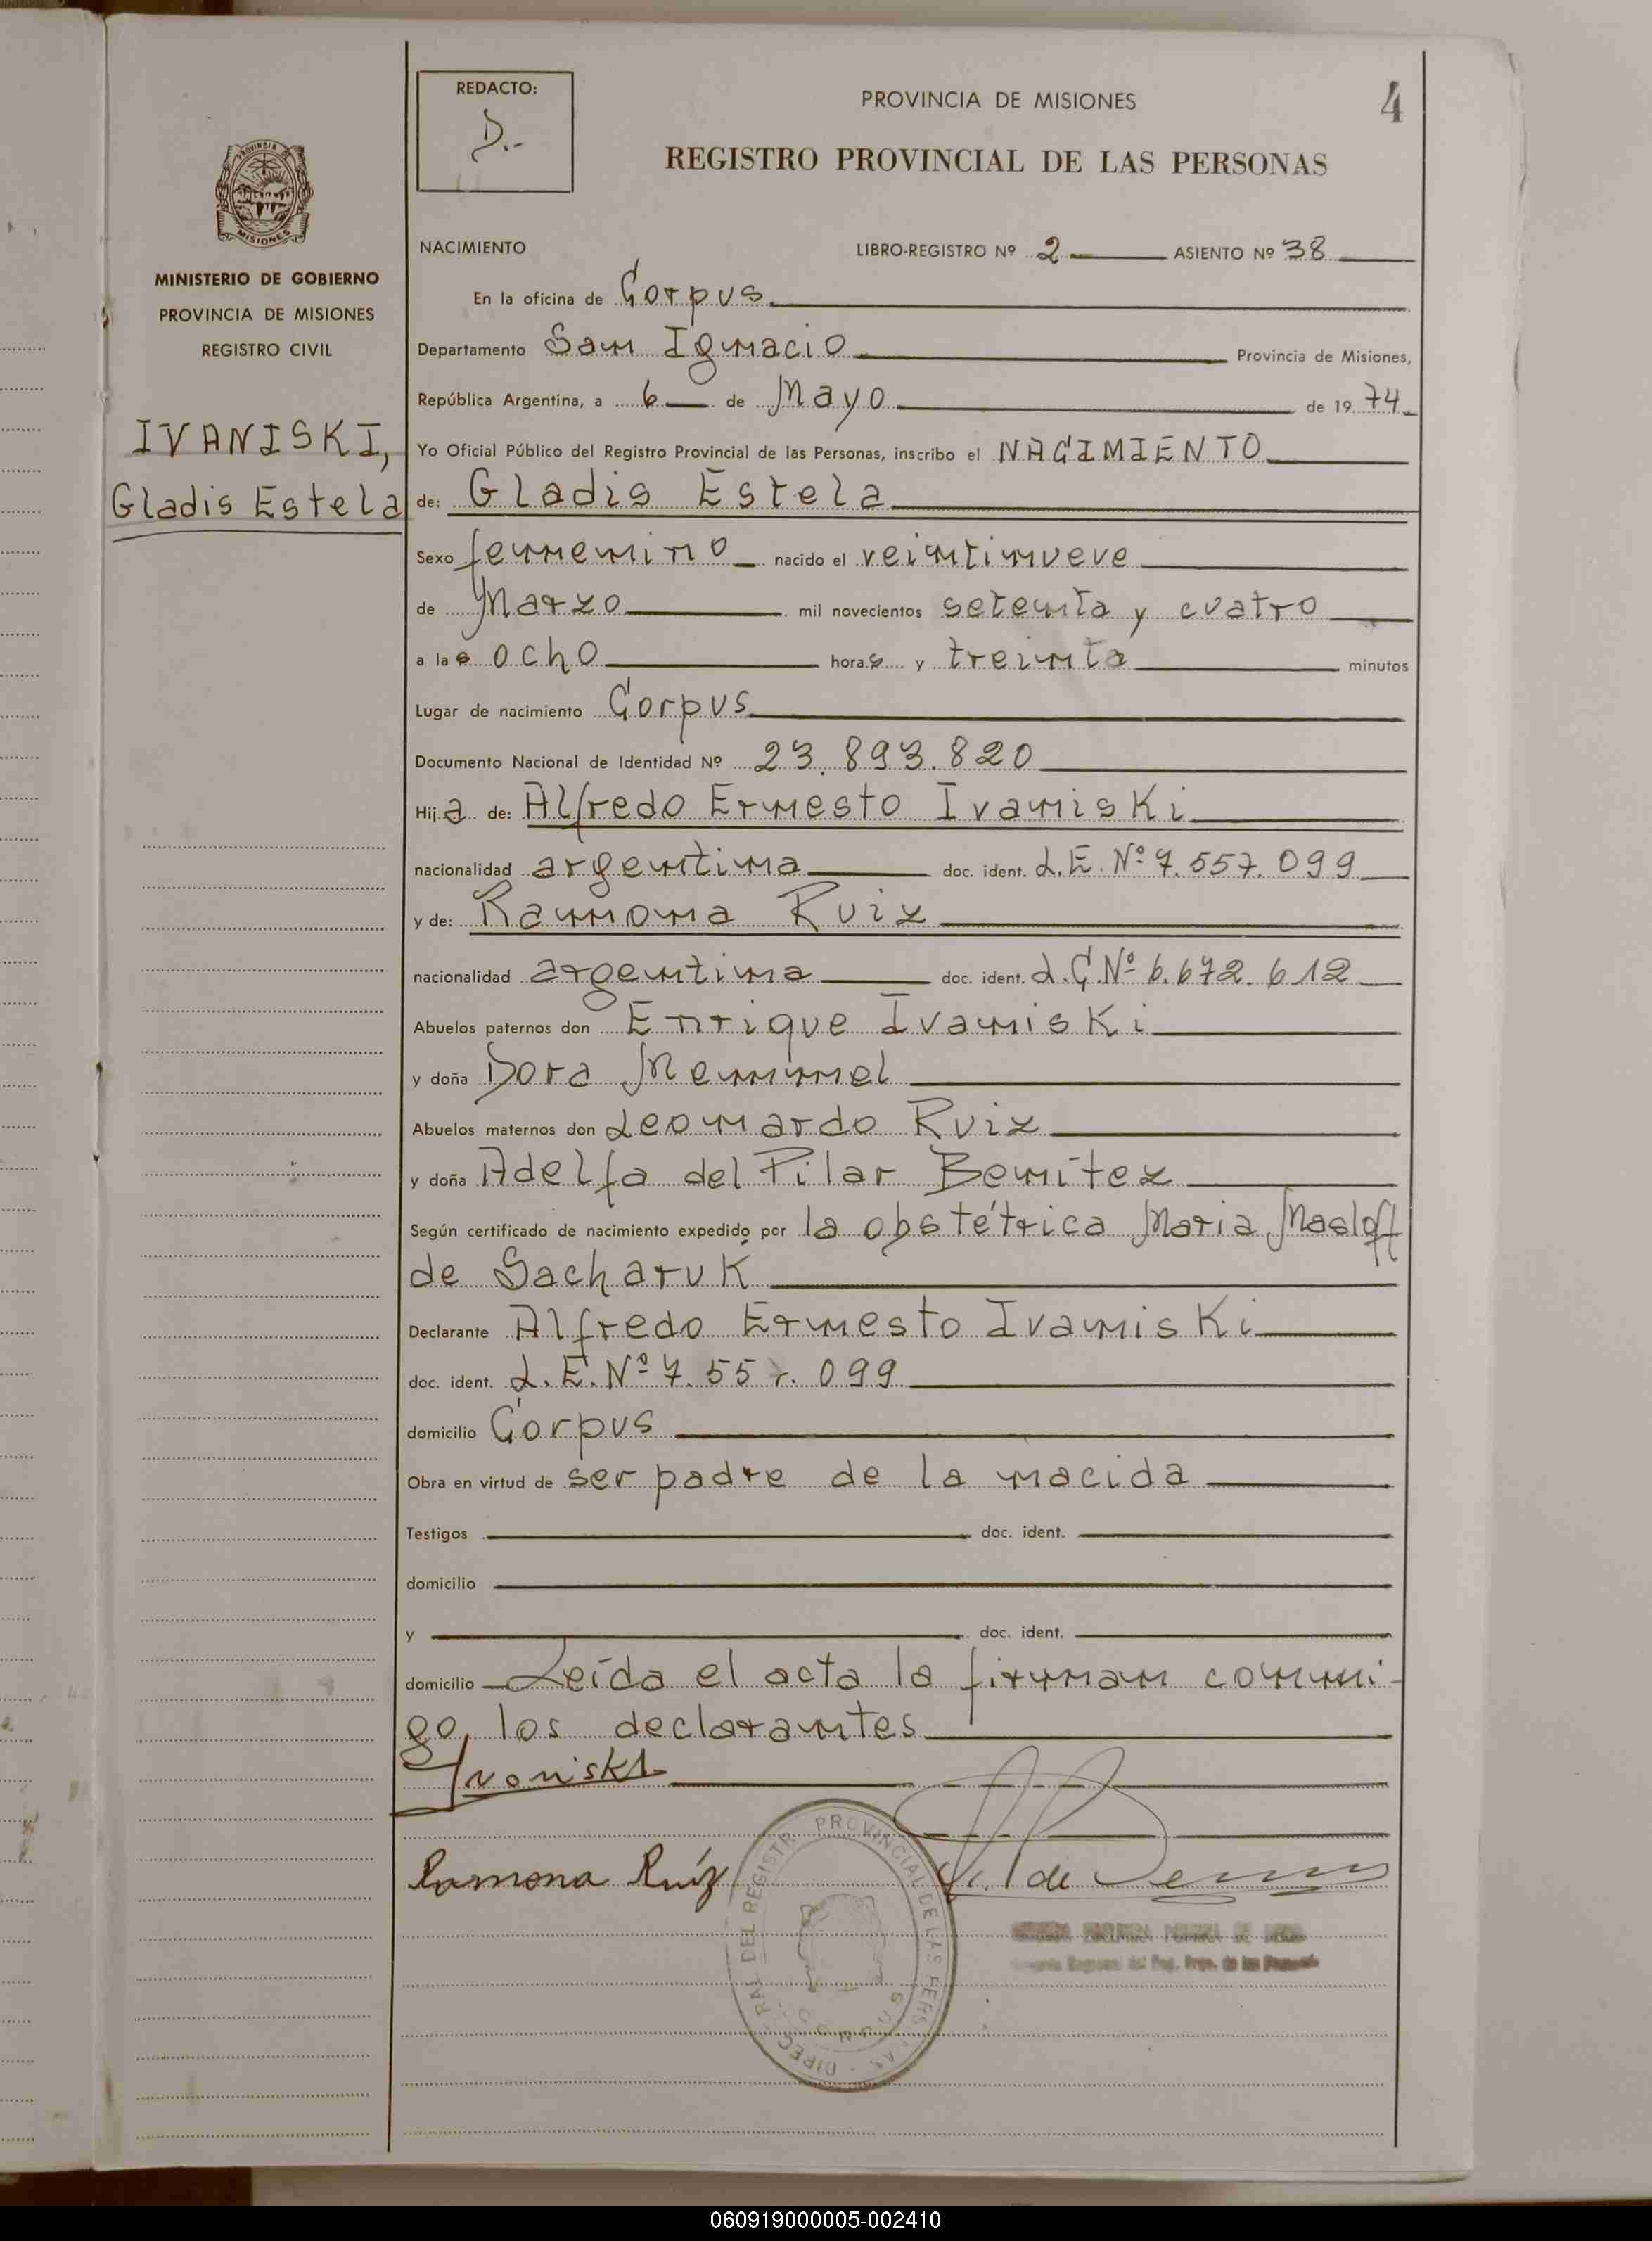 REDACTO:
D.-
PROVINCIA DE MISIONES
4
REGISTRO PROVINCIAL DE LAS PERSONAS
PROVINCIA
MISIONES
MINISTERIO DE GOBIERNO
PROVINCIA DE MISIONES
REGISTRO CIVIL
IVANISKI,
Gladis Estela
NACIMIENTO LIBRO-REGISTRO Nº 2 ASIENTO Nº 38
En la oficina de Corpus
Departamento San Ignacio Provincia de Misiones,
República Argentina, a 6 de Mayo de 1974
Yo Oficial Público del Registro Provincial de las Personas, inscribo el NACIMIENTO
de: Gladis Estela
Sexo femenino nacido el veintinueve
de Marzo mil novecientos setenta y cuatro
a las ocho horas y treinta minutos
Lugar de nacimiento Corpus
Documento Nacional de Identidad Nº 23.893.820
Hija de: Alfredo Ernesto Ivaniski
nacionalidad argentina doc. ident. L.E. Nº 7.557.099
y de: Ramona Ruiz
nacionalidad argentina doc. ident. L.C. Nº 6.672.612
Abuelos paternos don Enrique Ivaniski
y doña Dora Memmel
Abuelos maternos don Leonardo Ruiz
y doña Adelfa del Pilar Benitez
Según certificado de nacimiento expedido por la obstétrica Maria Masloff
de Sacharuk
Declarante Alfredo Ernesto Ivaniski
doc. ident. L.E. Nº 7.557.099
domicilio Corpus
Obra en virtud de ser padre de la nacida
Testigos doc. ident.
domicilio
y doc. ident.
domicilio Leída el acta la firman conmi-
go, los declarantes
Ivaniski
Ramona Ruíz
DIREC. GRAL DEL REGISTR. PROVINCIAL DE LAS PERSONAS
CORPUS
060919000005-002410